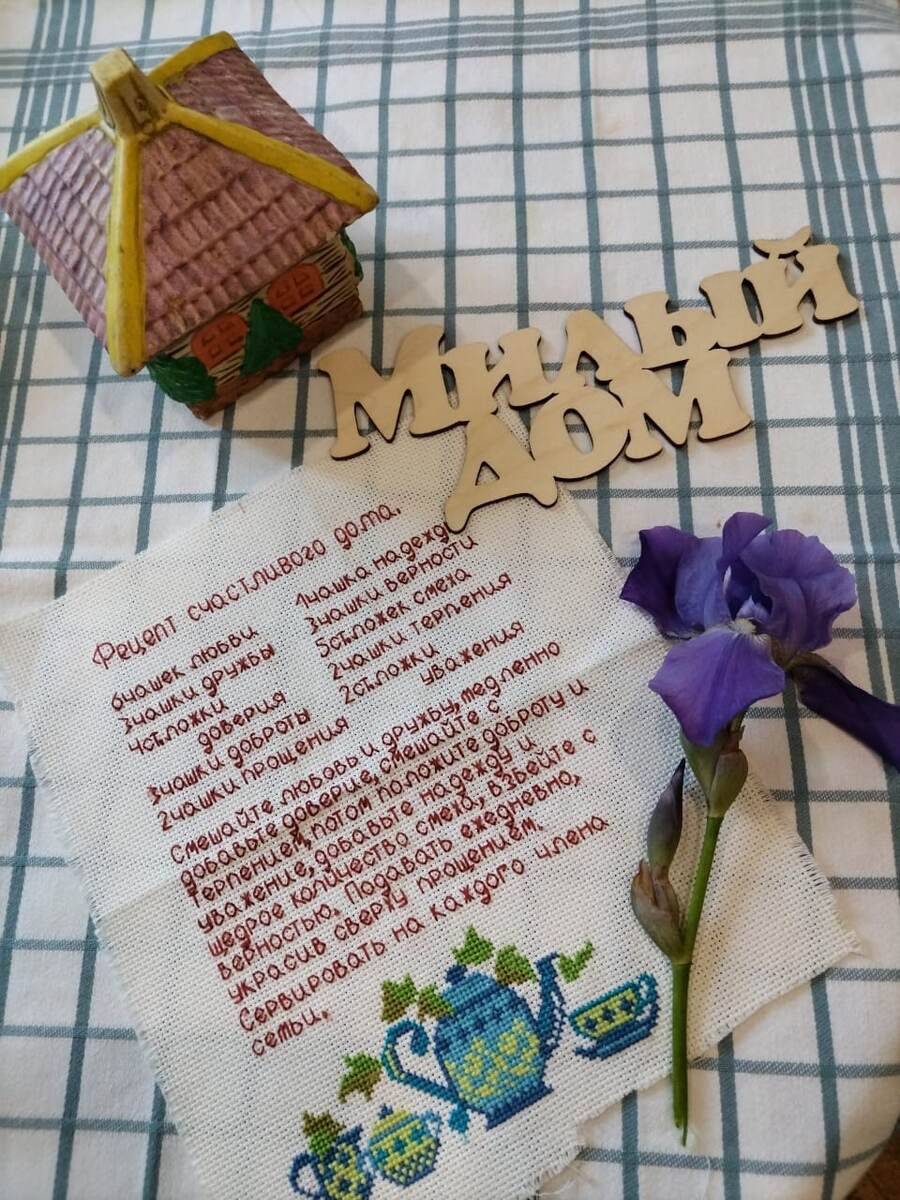 Милый
ДОМ
Рецепт счастливого дома.
6чашек любви
3чашки дружбы
4ст.ложки
доверия
3чашки доброты
2чашки прощения
1чашка надежды
3чашки верности
5ст.ложек смеха
2чашки терпения
2ст.ложки
уважения
Смешайте любовь и дружбу, медленно
добавьте доверие, смешайте с
терпением, потом положите доброту и
уважение, добавьте надежду и
щедрое количество смеха, взбейте с
верностью. Подавать ежедневно,
украсив сверху прощением.
Сервировать на каждого члена
семьи.